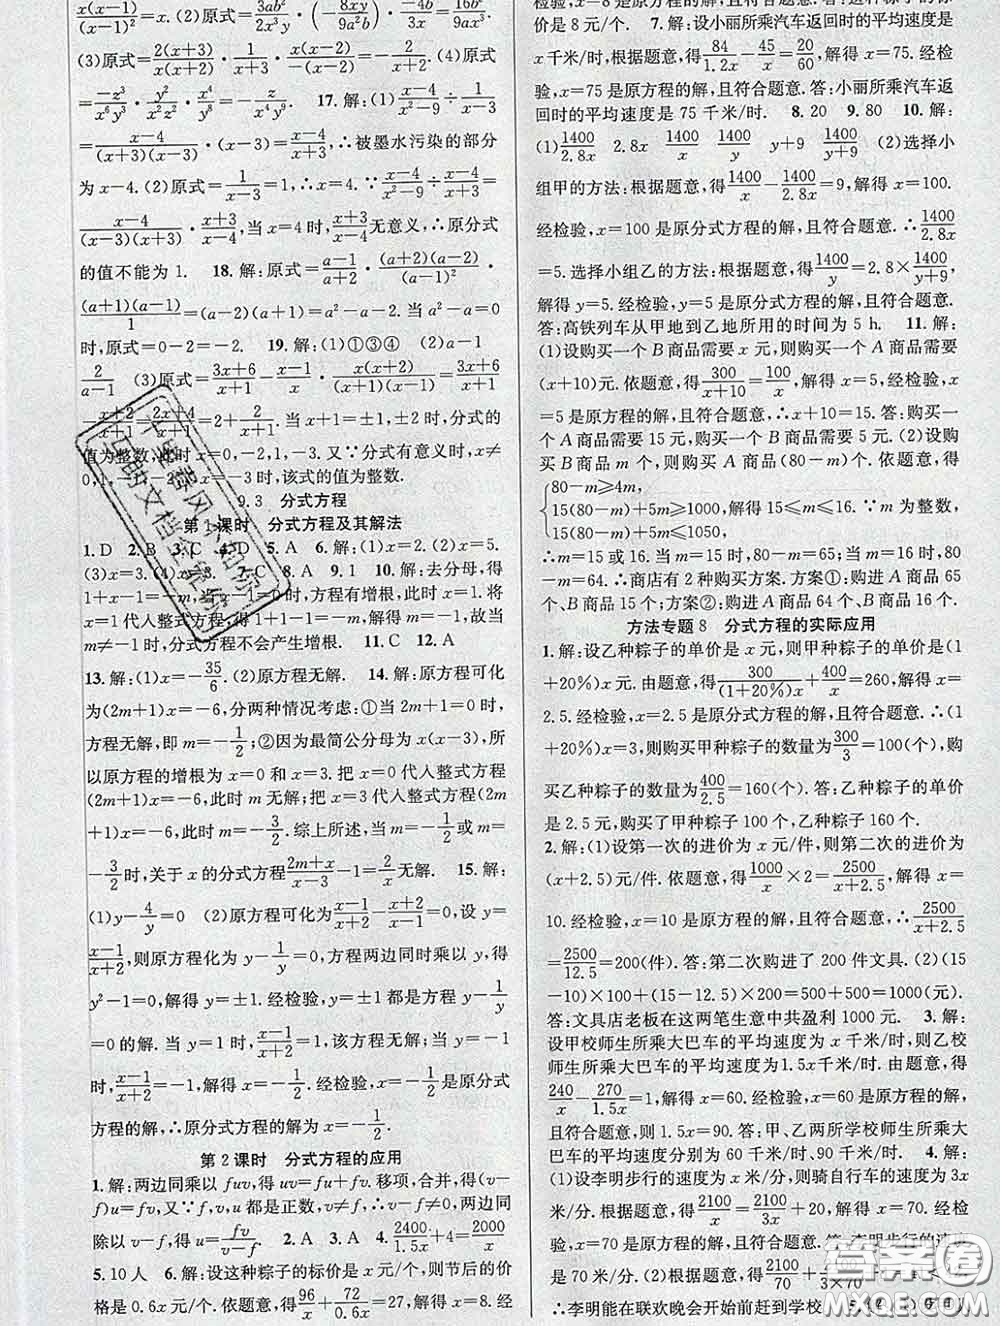 x(x−1)/(x−1)². (2)原式=3ab²/2x³y·(−8xy/9a²b)·3x/−4b=16b²/9ax³.
(3)原式=2(x+3)/x(x+2)·1/x+3·x(x−3)/−(x−3)=−2/x+2. (4)原式
=−z³/x⁶y³·y²/x²z²·x⁴/y⁸=−z/x⁴y⁹. 17. 解:(1)x−4/x²−9÷1/x−3
=x−4/(x+3)(x−3)·(x−3)=x−4/x+3,∴被墨水污染的部分
为x−4. (2)原式=1/x−3=1,∴x=4. ∵x−4/x²−9÷x−4/x+3=
x−4/(x−3)(x+3)·x+3/x−4,当x=4时,x+3/x−4无意义,∴原分式
的值不能为1. 18. 解:原式=a−1/a+2·(a+2)(a−2)/(a−1)²·
(a+1)(a−1)/1=(a−2)(a+1)=a²−a−2. 当a=0
时,原式=0−2=−2. 19. 解:(1)①③④ (2)a−1
2/a−1 (3)原式=3x+6/x+1−x−1/x·x(x+2)/(x+1)(x−1)=3x+6/x+1
−x+2/x+1=2x+4/x+1=2+2/x+1. 当x+1=±1,±2时,分式的
值为整数,此时x=0,−2,1,−3. 又∵分式有意义时,x≠
0,1,−1,−2,∴x=−3时,该式的值为整数.
9.3 分式方程
第1课时 分式方程及其解法
1. D 2. B 3. C 4. D 5. A 6. 解:(1)x=2. (2)x=5.
(3)x=3. (4)x= C 8. A 9. 1 10. 解:去分母,得
1+x−1=m−x. 当x−1=0时,方程有增根,此时x=1. 将
x=1代入整式方程,得1+1−1=m−1,解得m=2,故当
m≠−7时,分式方程不会产生增根. 11. C 12. A
13. 解:(1)x=−35/6. (2)原方程无解. 14. 解:原方程可化
为(2m+1)x=−6,分两种情况考虑:①当2m+1=0时,
方程无解,即m=−1/2;②因为最简公分母为x(x−3),所
以原方程的增根为x=0和x=3. 把x=0代入整式方程
(2m+1)x=−6,此时m无解;把x=3代入整式方程(2m
+1)x=−6,此时m=−3/2. 综上所述,当m=−1/2或m=
−3/2时,关于x的分式方程2m+x/x−3−1=2/x无解. 15. 解:
(1)y−4/y=0 (2)原方程可化为x−1/x+2−x+2/x−1=0,设y=
x−1/x+2,则原方程化为y−1/y=0,方程两边同时乘以y,得
y²−1=0,解得y=±1. 经检验,y=±1都是方程y−1/y
=0的解. 当y=1时,x−1/x+2=1,该方程无解;当y=−1
时,x−1/x+2=−1,解得x=−1/2. 经检验,x=−1/2是原分式
方程的解,∴原分式方程的解为x=−1/2.
第2课时 分式方程的应用
1. 解:两边同乘以fuv,得uv=fu+fv. 移项,合并,得(v−
f)u=fv,又∵f,u,v都是正数,v≠f,∴v−f≠0,两边同
除以v−f,得u=fv/v−f. 2. A 3. A 4. 2400/1.5x+4=2000/x
5. 10人 6. 解:设这种粽子的标价是x元/个,则节后的价
格是0.6x元/个. 依题意,得96/x+72/0.6x=27,解得x=8. 经
价是8元/个. 7. 解:设小丽所乘汽车返回时的平均速度是
x千米/时,根据题意,得84/1.2x−45/x=20/60,解得x=75. 经检
验,x=75是原方程的解,且符合题意. 答:小丽所乘汽车返
回时的平均速度是75千米/时. 8. 20 9. 80 10. 解:
(1)1400/2.8x 1400/x 1400/y y+9 1400/y+9 (2)选择小
组甲的方法:根据题意,得1400/x−1400/2.8x=9,解得x=100.
经检验,x=100是原分式方程的解,且符合题意. ∴1400/2.8x
=5. 选择小组乙的方法:根据题意,得1400/y=2.8×1400/y+9,
解得y=5. 经检验,y=5是原分式方程的解,且符合题意.
答:高铁列车从甲地到乙地所用的时间为5 h. 11. 解:
(1)设购买一个B商品需要x元,则购买一个A商品需要
(x+10)元. 依题意,得300/x+10=100/x,解得x=5. 经检验,x
=5是原方程的解,且符合题意,∴x+10=15. 答:购买一
个A商品需要15元,购买一个B商品需要5元. (2)设购
买B商品m个,则购买A商品(80−m)个. 依题意,得
{80−m≥4m,
15(80−m)+5m≥1000,解得15≤m≤16. ∵m为整数,
15(80−m)+5m≤1050,
∴m=15或16. 当m=15时,80−m=65;当m=16时,80
−m=64. ∴商店有2种购买方案. 方案①:购进A商品65
个、B商品15个;方案②:购进A商品64个、B商品16个.
方法专题8 分式方程的实际应用
1. 解:设乙种粽子的单价是x元,则甲种粽子的单价是(1
+20%)x元. 由题意,得300/(1+20%)x+400/x=260,解得x=
2.5. 经检验,x=2.5是原分式方程的解,且符合题意. ∴(1
+20%)x=3,则购买甲种粽子的数量为300/3=100(个),购
买乙种粽子的数量为400/2.5=160(个). 答:乙种粽子的单价
是2.5元,购买了甲种粽子100个,乙种粽子160个.
2. 解:(1)设第一次的进价为x元/件,则第二次的进价为
(x+2.5)元/件. 依题意,得1000/x×2=2500/x+2.5,解得x=
10. 经检验,x=10是原方程的解,且符合题意,∴2500/x+2.5
=2500/12.5=200(件). 答:第二次购进了200件文具. (2)(15
−10)×100+(15−12.5)×200=500+500=1000(元).
答:文具店老板在这两笔生意中共盈利1000元. 3. 解:
设甲校师生所乘大巴车的平均速度为x千米/时,则乙校
师生所乘大巴车的平均速度为1.5x千米/时. 由题意,得
240/x−270/1.5x=1,解得x=60. 经检验,x=60是原方程的解,
且符合题意. ∴1.5x=90. 答:甲、乙两所学校师生所乘大
巴车的平均速度分别为60千米/时、90千米/时. 4. 解:
(1)设李明步行的速度为x米/分,则骑自行车的速度为3x
米/分. 根据题意,得2100/x=2100/3x+20,解得x=70. 经检验,
x=70是原方程的解,且符合题意. 答:李明步行的速度
是70米/分. (2)根据题意,得2100/70+2100/3×70
∴李明能在联欢晚会开始前赶到学校.
答案圈